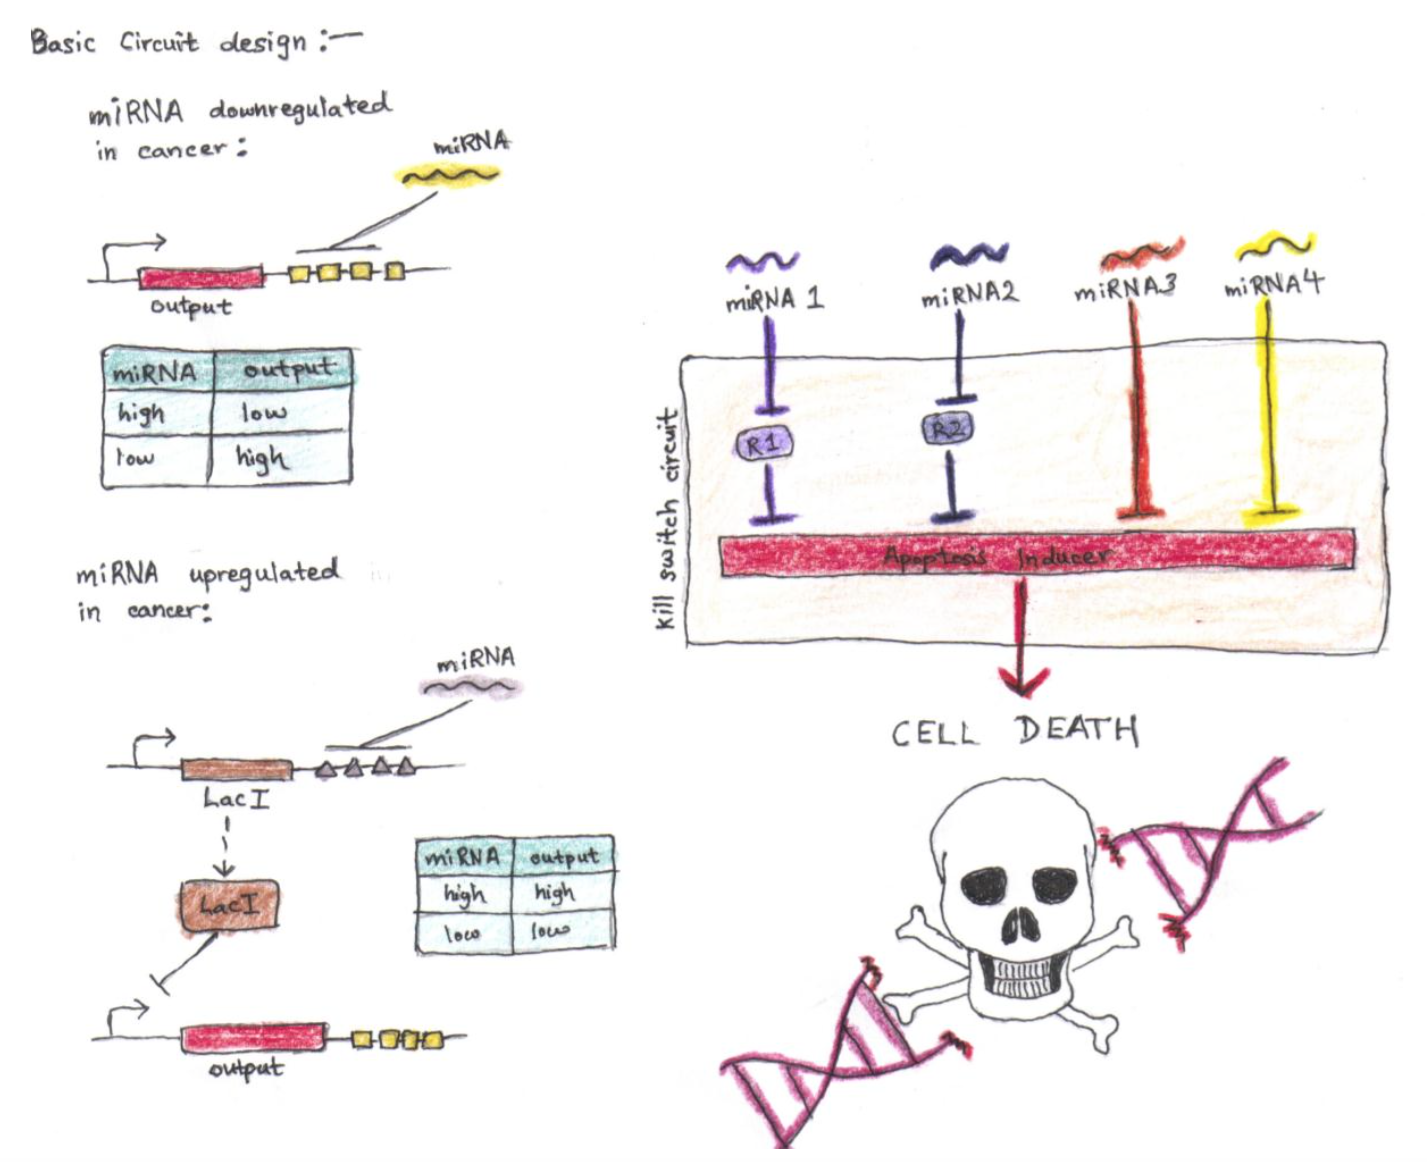 Basic Circuit design :-
miRNA downregulated
in cancer :
miRNA
output
miRNA output
high low
low high
miRNA upregulated
in cancer:
miRNA
LacI
LacI
miRNA output
high high
low low
output
miRNA 1 miRNA2 miRNA3 miRNA4
Kill switch circuit
R1 R2
Apoptosis Inducer
CELL DEATH